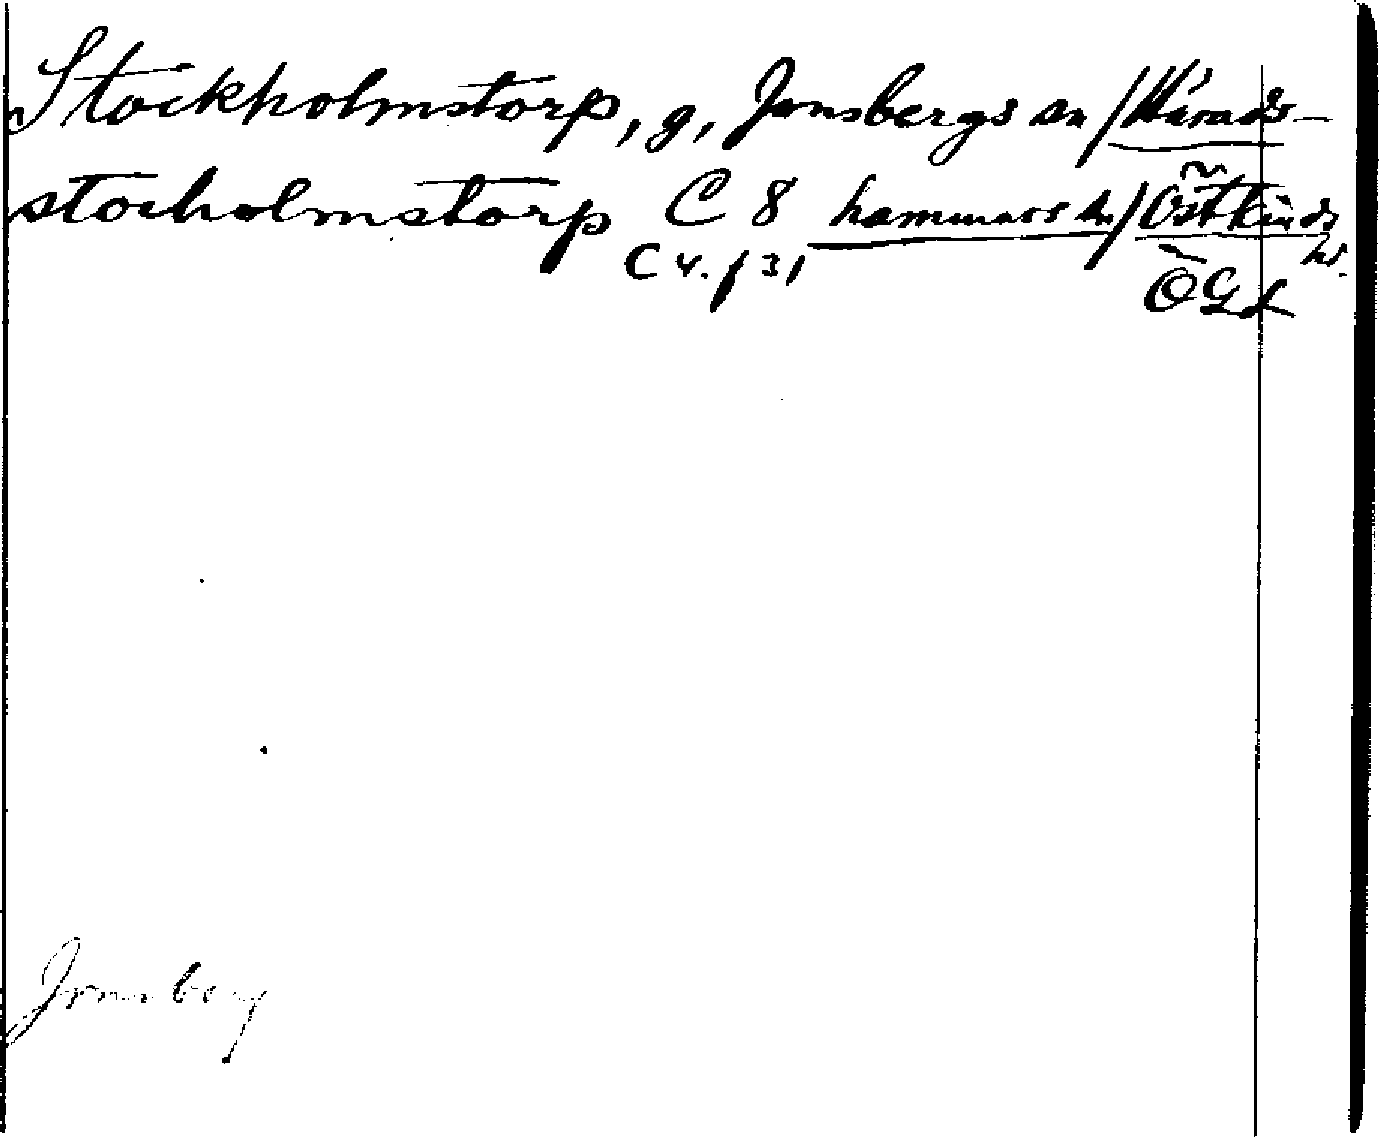 Stockholmstorp, g, Jonsbergs sn / Härads-
stocholmstorp C 8 hammars sn / Östkinds
C 4. f 31 hd.
ÖGL
Jonsberg